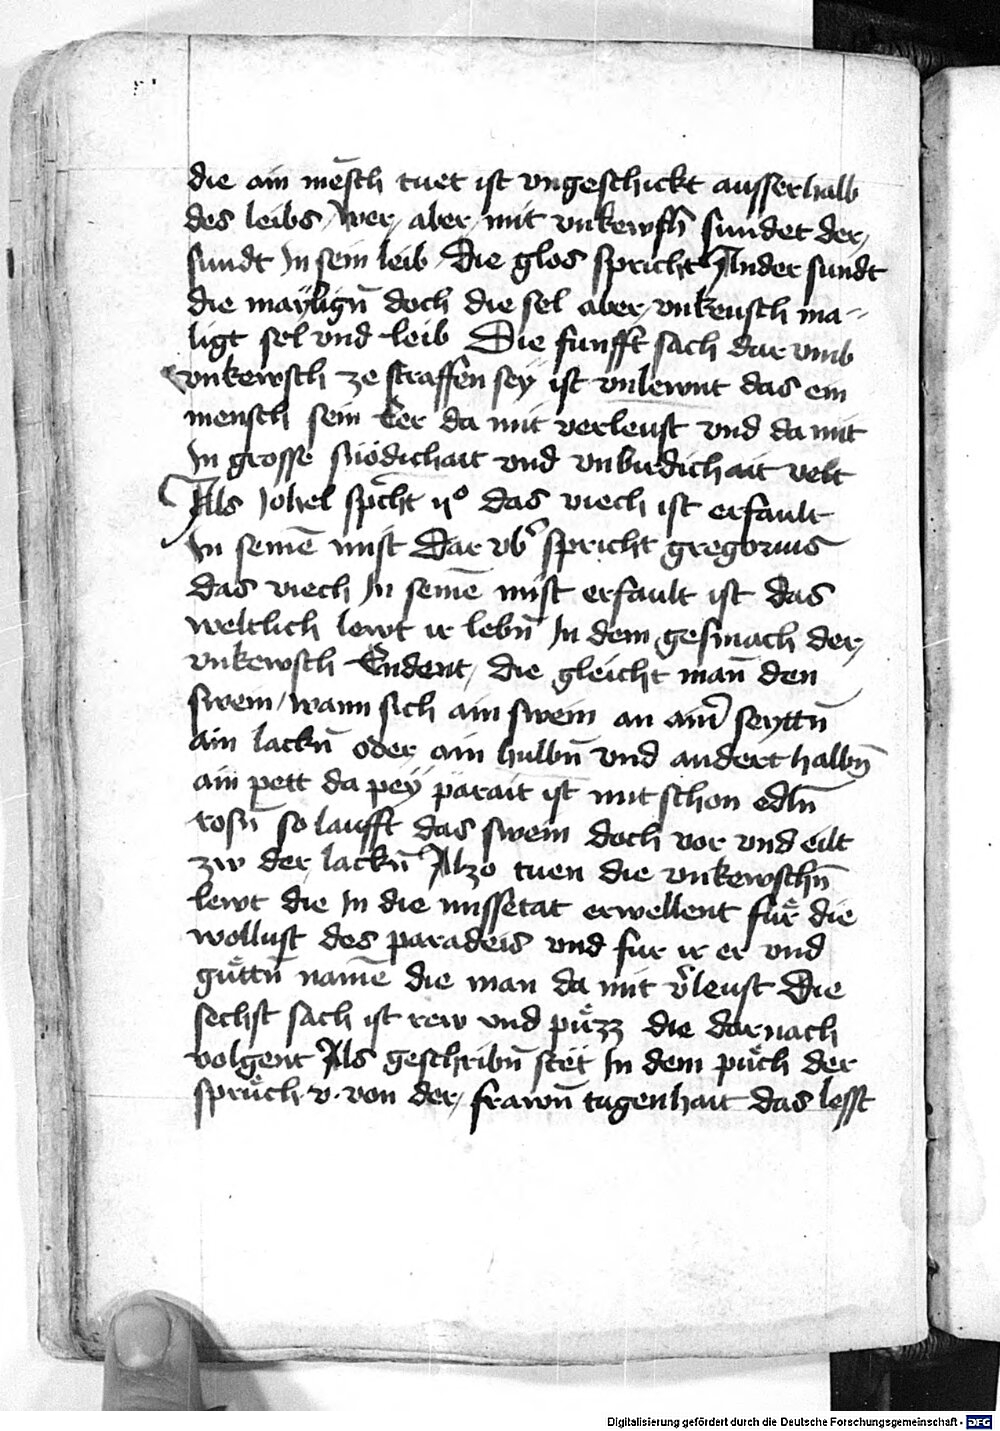 die ain mēsch tuet ist vngeschickt ausserhalb
des leibs / wer aber mit vnkewsch̄ sundet der
sundt In sein leib Die glos spricht Ander sundt
die maylign̄ doch die sel aber vnkeusch ma-
ligt sel vnd leib Die funfft sach dar vmb
vnkewsch ze straffen sey ist vnlewnt das ein
mensch sein Eer da mit verleust vnd da mit
In grosse snödichait vnd vnbirdichait velt
Als Johel sp̄cht ijº das viech ist erfault
In seinē mist Dar vb̄ spricht gregorius
das viech In seinē mist erfault ist das
weltlich lewt ir lebn̄ In dem gesmach der
vnkewsch Endent / die gleicht man̄ den
swein / wann sich ain swein an aim̄ seyttn̄
ain lackn̄ oder ain hulbn̄ vnd andert halbn̄
ain pett da pey părait ist mit schon edln̄
rosn̄ so laufft das swein doch vor vnd eilt
zw der lackn̄ Alzo tuen die vnkewschn̄
lewt die In die missetat erwellent fur die
wollust des paradeis vnd fur ir er vnd
guttn̄ namē die man da mit v̄leust Die
sechst sach ist rew vnd puzz die dar nach
volgent Als geschribn̄ stet In dem puch der
spruch · v · von der frawn̄ tugenhait das lesst
Digitalisierung gefördert durch die Deutsche Forschungsgemeinschaft - DFG